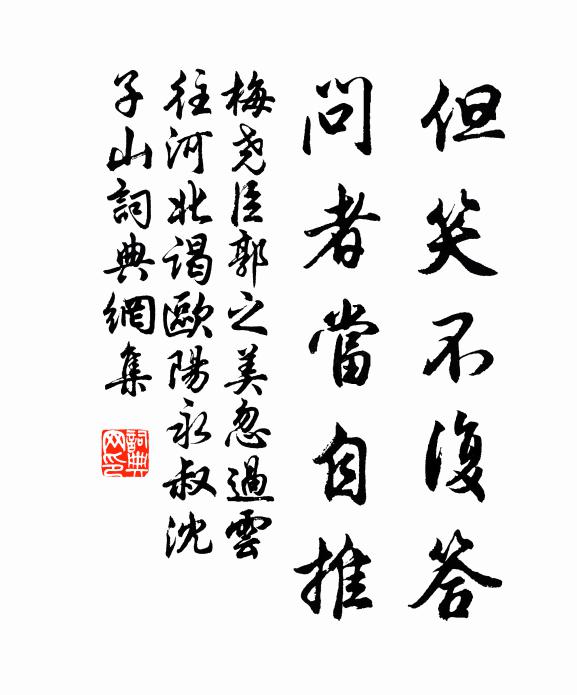 但笑不復答
問者當自推
梅堯臣郭之美忽過雲
往河北謁歐陽永叔沈
子山詞典網集
詞典網印